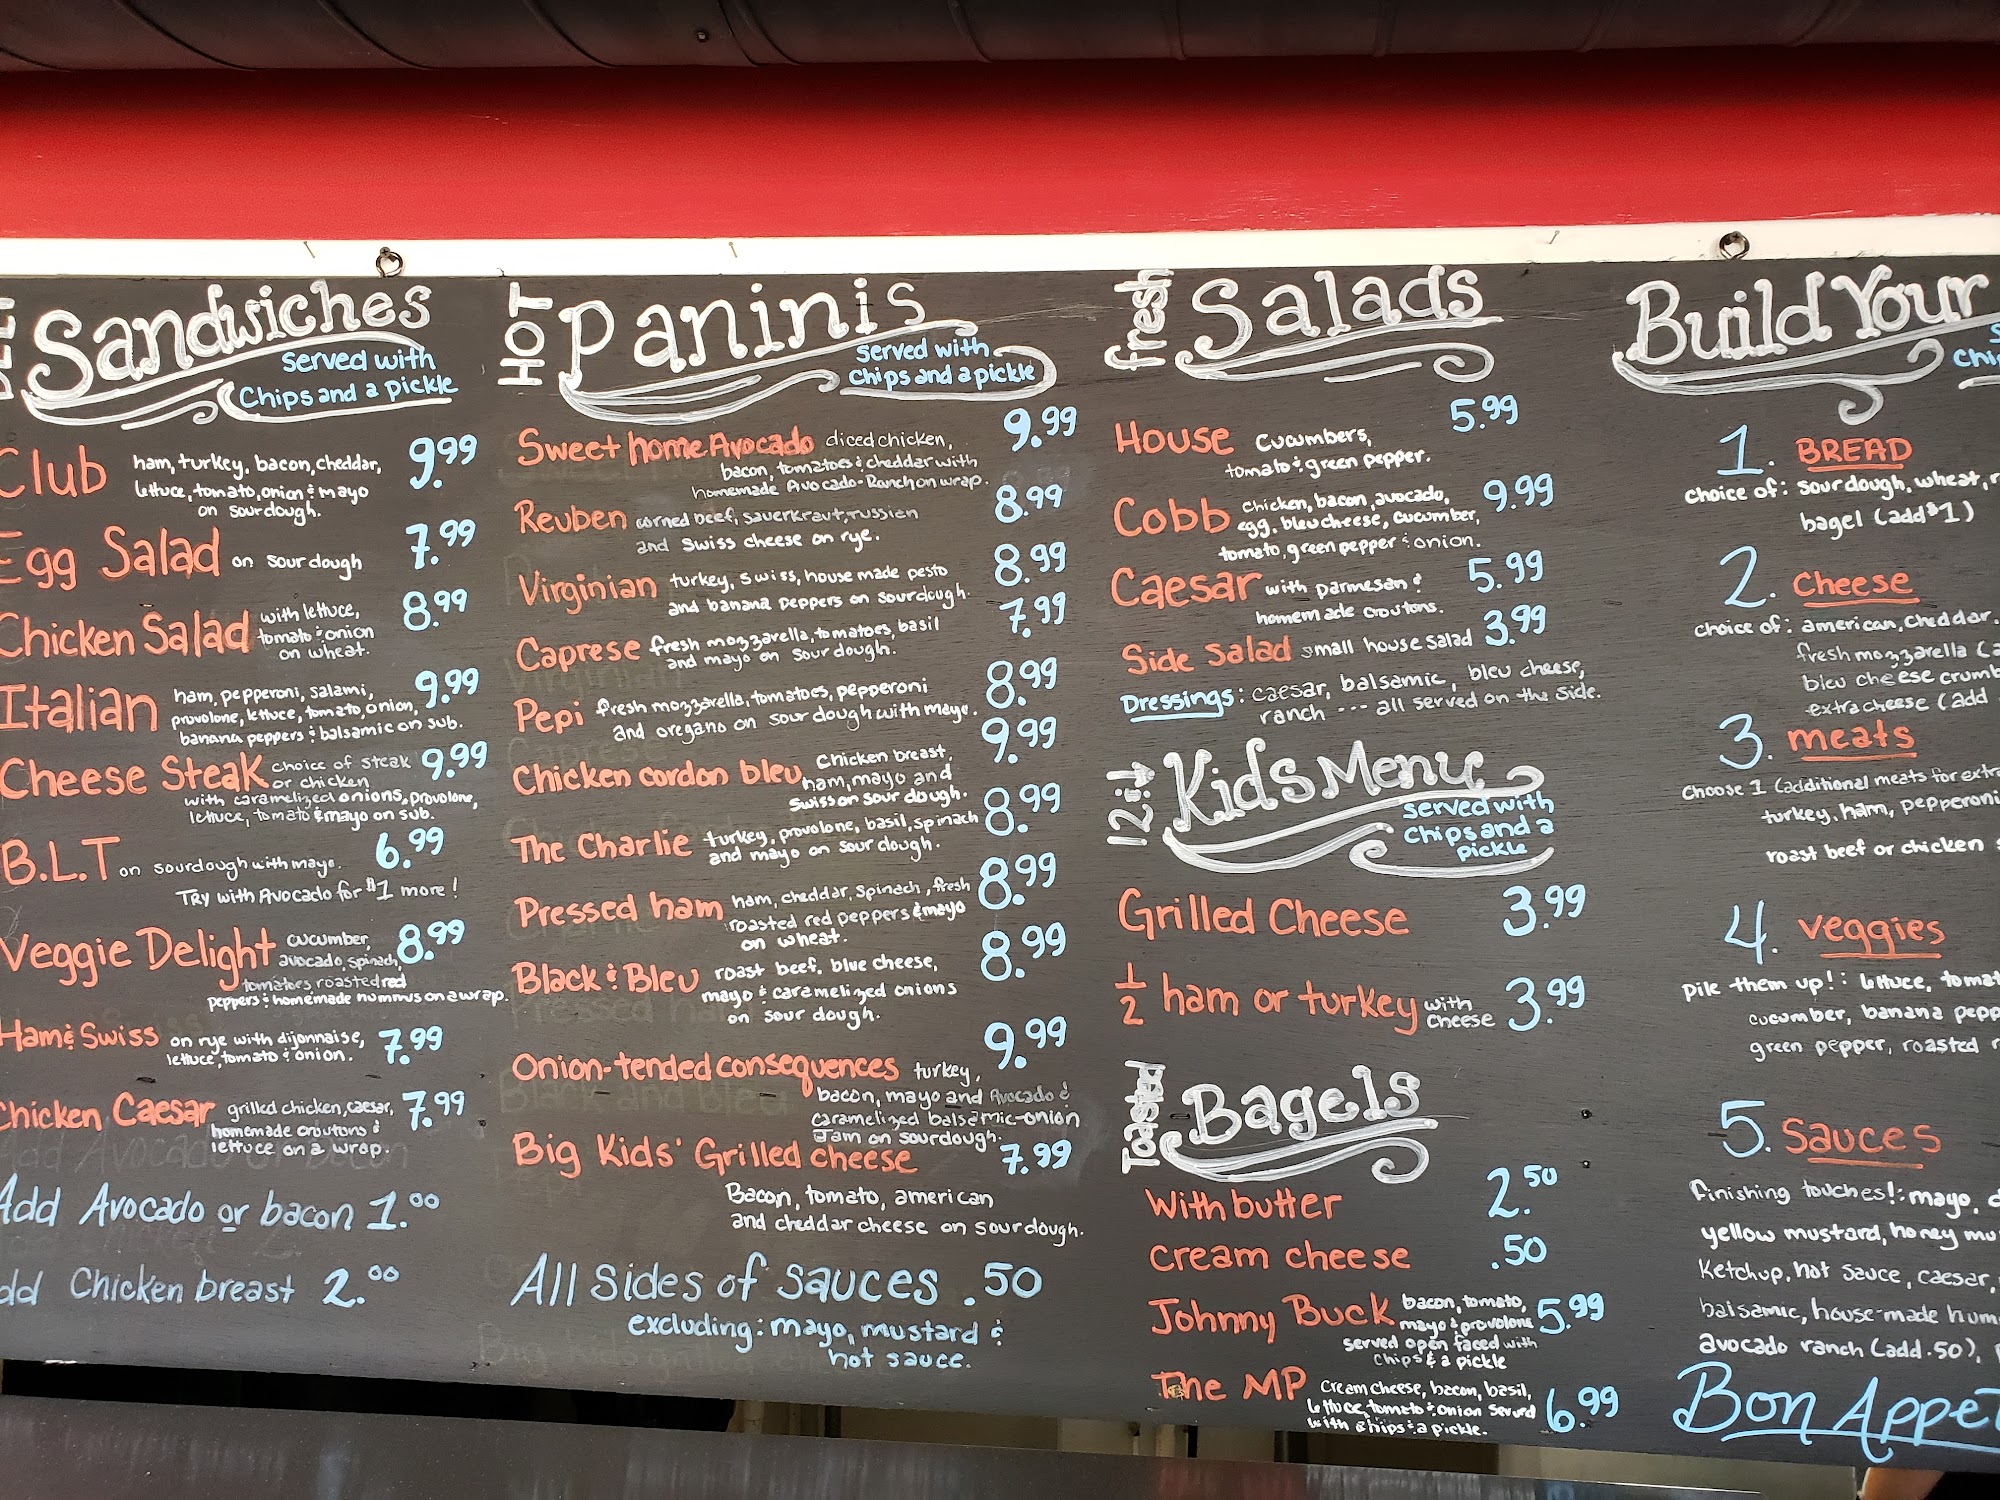 Sandwiches
served with
Chips and a pickle
Club 9.99
ham, turkey, bacon, cheddar,
lettuce, tomato, onion & mayo
on sourdough.
Egg Salad on sourdough 7.99
Chicken Salad with lettuce, 8.99
tomato & onion
on wheat.
Italian ham, pepperoni, salami, 9.99
provolone, lettuce, tomato, onion,
banana peppers & balsamic on sub.
Cheese Steak choice of steak 9.99
or chicken
with caramelized onions, provolone,
lettuce, tomato & mayo on sub.
B.L.T on sourdough with mayo. 6.99
Try with Avocado for $1 more!
Veggie Delight cucumber, 8.99
avocado, spinach,
tomatoes roasted red
peppers & homemade hummus on a wrap.
Ham & Swiss on rye with dijonnaise, 7.99
lettuce, tomato & onion.
Chicken Caesar grilled chicken, caesar, 7.99
homemade croutons &
lettuce on a wrap.
Add Avocado or bacon 1.00
Add Chicken breast 2.00
HOT Paninis
served with
chips and a pickle
Sweet home Avocado diced chicken, 9.99
bacon, tomatoes & cheddar with
homemade Avocado-Ranch on wrap.
Reuben corned beef, sauerkraut, russian 8.99
and swiss cheese on rye.
Virginian turkey, swiss, house made pesto 8.99
and banana peppers on sourdough.
Caprese fresh mozzarella, tomatoes, basil 7.99
and mayo on sourdough.
Pepi fresh mozzarella, tomatoes, pepperoni 8.99
and oregano on sourdough with mayo.
Chicken cordon bleu Chicken breast, 9.99
ham, mayo and
swiss on sourdough.
The Charlie turkey, provolone, basil, spinach 8.99
and mayo on sourdough.
Pressed ham ham, cheddar, spinach, fresh 8.99
roasted red peppers & mayo
on wheat.
Black & Bleu roast beef, blue cheese, 8.99
mayo & caramelized onions
on sourdough.
Onion-tended consequences turkey, 9.99
bacon, mayo and Avocado &
caramelized balsamic-onion
Jam on sourdough.
Big Kids' Grilled cheese 7.99
Bacon, tomato, american
and cheddar cheese on sourdough.
All Sides of sauces .50
excluding: mayo, mustard &
hot sauce.
fresh Salads
House cucumbers, 5.99
tomato & green pepper.
Cobb chicken, bacon, avocado, 9.99
egg, bleu cheese, cucumber,
tomato, green pepper & onion.
Caesar with parmesan & 5.99
homemade croutons.
Side Salad small house salad 3.99
Dressings: caesar, balsamic, bleu cheese,
ranch --- all served on the side.
12 & ↓ Kids Menu
served with
Chips and a
pickle
Grilled Cheese 3.99
1/2 ham or turkey with 3.99
cheese
Toasted Bagels
With butter 2.50
cream cheese .50
Johnny Buck bacon, tomato, 5.99
mayo & provolone
served open faced with
chips & a pickle
The MP cream cheese, bacon, basil, 6.99
lettuce, tomato & onion served
with chips & a pickle.
Build Your
1. BREAD
choice of: sourdough, wheat,
bagel (add $1)
2. Cheese
choice of: american, cheddar,
fresh mozzarella
bleu cheese
extra cheese (add
3. meats
choose 1 (additional meats for
turkey, ham, pepperoni
roast beef or chicken
4. veggies
pile them up!: lettuce,
cucumber, banana
green pepper, roasted
5. Sauces
finishing touches!: mayo,
yellow mustard, honey
Ketchup, hot sauce, caesar,
balsamic, house-made
avocado ranch (add .50),
Bon